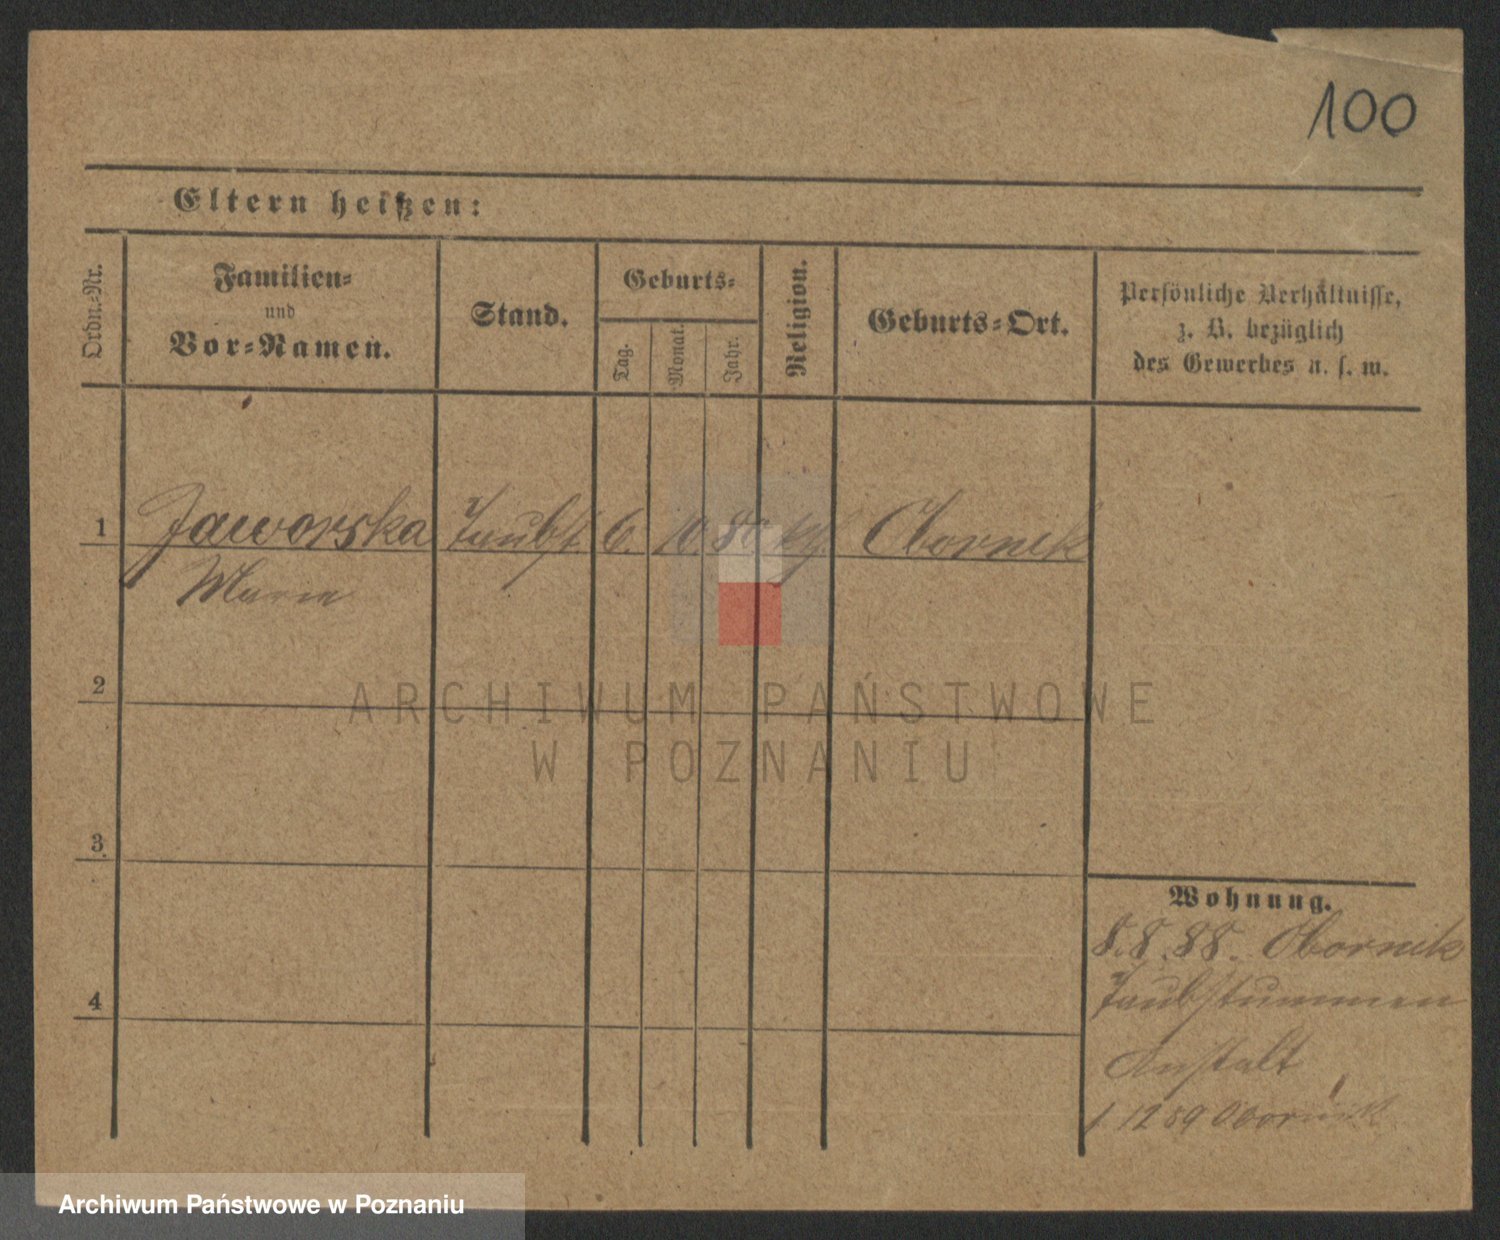 100
Eltern heißen:
Ordn.-Nr.
Familien-
und
Vor-Namen.
Stand.
Geburts-
Tag.
Monat.
Jahr.
Religion.
Geburts-Ort.
Persönliche Verhältnisse,
z. B. bezüglich
des Gewerbes u. s. w.
1 Jaworska Taubst. 6. 10. 80 kth. Obornik
Marie
2
ARCHIWUM PAŃSTWOWE
W POZNANIU
3
4
Wohnung.
8.8.88. Obornik
Taubstummen
Anstalt
1 12 89 Obornik
Archiwum Państwowe w Poznaniu